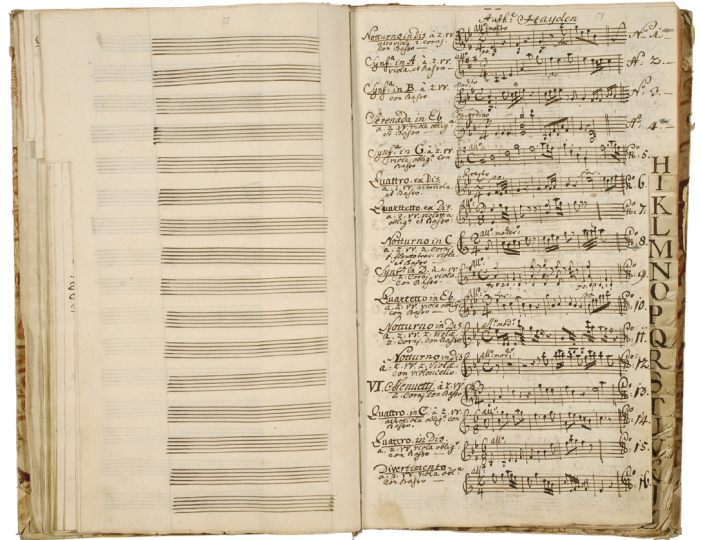 58
Auth:e Hayden
59
Notturno in Dis. à 2. vv.
alto viola 2. Corni.
con Basso
all:o molto
N:o 1.
Synf:a in A à 2. vv.
viola. et Basso
N:o 2.
Synf:a in B. à 2. vv.
con Basso
N:o 3.
Serenada in Eb.
a. 2. vv. viola oblig:a
et Basso
N:o 4.
Synf:a in G. à 2. vv.
viola oblig:a con
Basso
N:o 5.
Quattro. ex Dis.
a. 2. vv. alto viola.
et Basso
Presto
N:o 6.
Quartetto. ex Dis.
a. 2. vv. violetta
oblig:a et Basso
all:o
N:o 7.
Notturno in C
a. 2. vv. 2. Corni.
viola.
et Basso
all:o moder:o
N:o 8.
Synf:a in D. a. 2. vv.
2. Corni. viola
con Basso
all:o
N:o 9.
Quartetto in Eb.
a. 2. vv. viola oblig:a
con Basso
N:o 10.
Notturno in Dis
a. 2. vv. 2. viola
2. Corni. con Basso
all:o mod:o
N:o 11.
Notturno in Dis
a. 2. vv. 2. viola
con violoncello.
all:o mod:o
N:o 12
VI. Menuetti à 2. vv.
2. Corni con Basso
N:o 13.
Quattro. in C. à 2. vv.
alto viola oblig:a con
Basso.
all:o
N:o 14.
Quattro. in Dis.
a. 2. vv. viola oblig:a
con Basso
all:o
N:o 15.
Divertimento
a. 2. vv. viola obl:a
con Basso
all:o
N:o 16.
H
I
K
L
M
N
O
P
Q
R
S
T